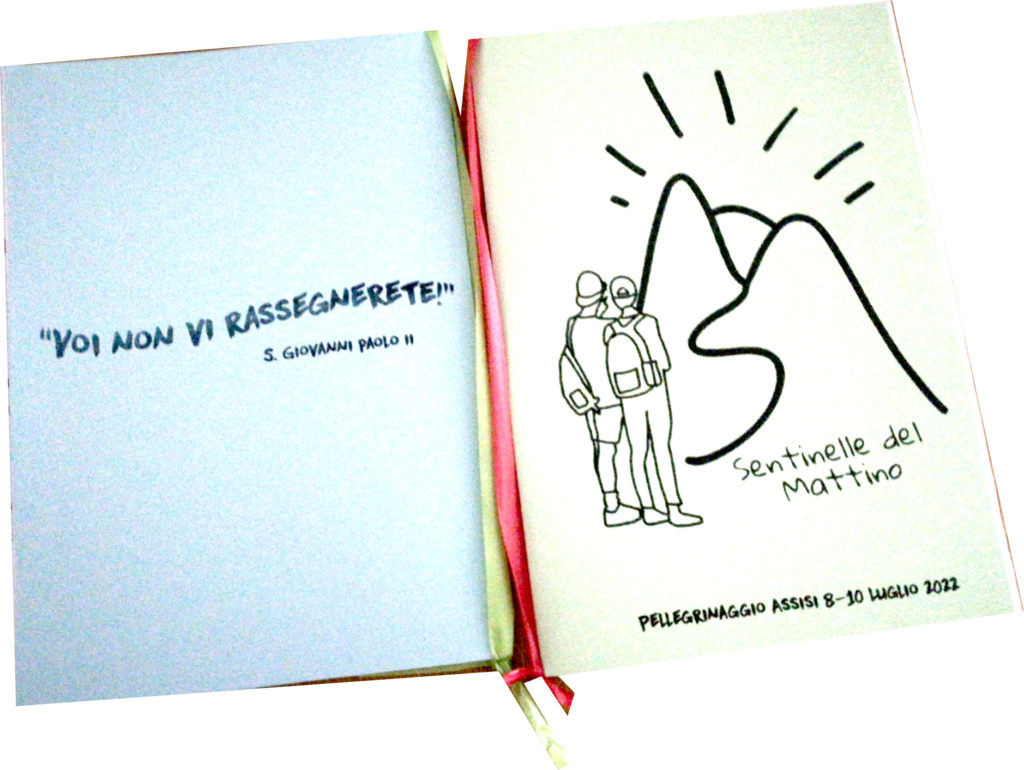 "VOI NON VI RASSEGNERETE!"
S. GIOVANNI PAOLO II
Sentinelle del
Mattino
PELLEGRINAGGIO ASSISI 8-10 LUGLIO 2022